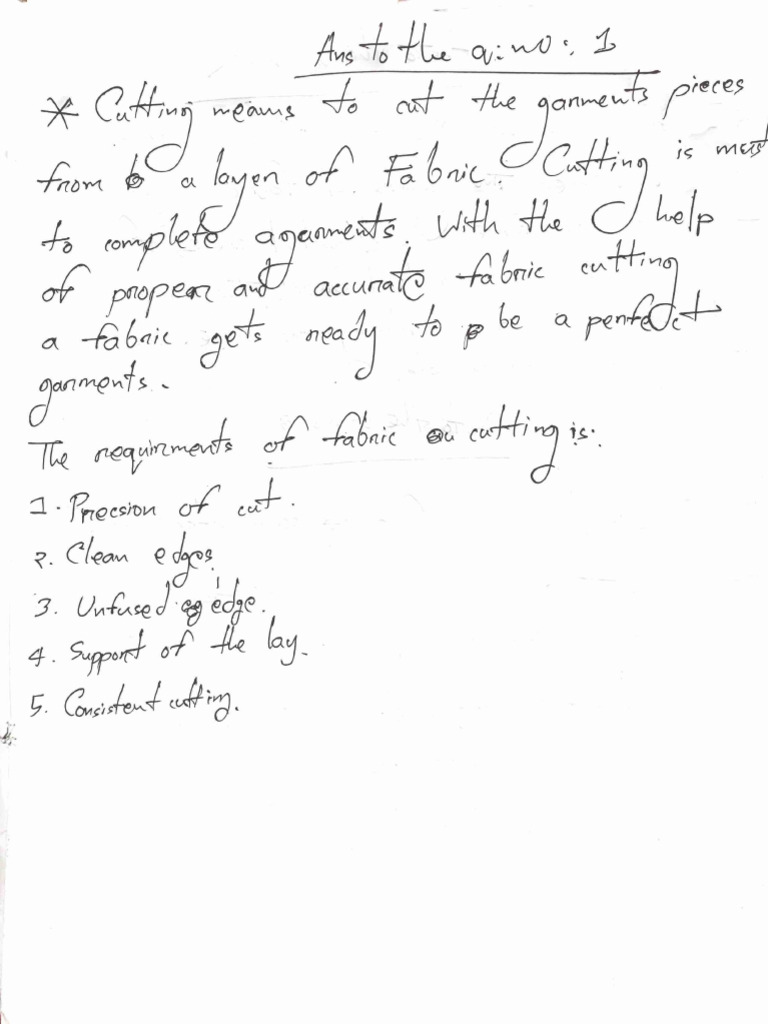 Ans to the q: no: 1
* Cutting means to cut the garments pieces
from a layer of Fabric. Cutting is must
to complete a garments. With the help
of proper and accurate fabric cutting
a fabric gets ready to be a perfect
garments.
The requirments of fabric cutting is:
1. Precsion of cut.
2. Clean edges.
3. Unfused edge.
4. Support of the lay.
5. Consistent cutting.